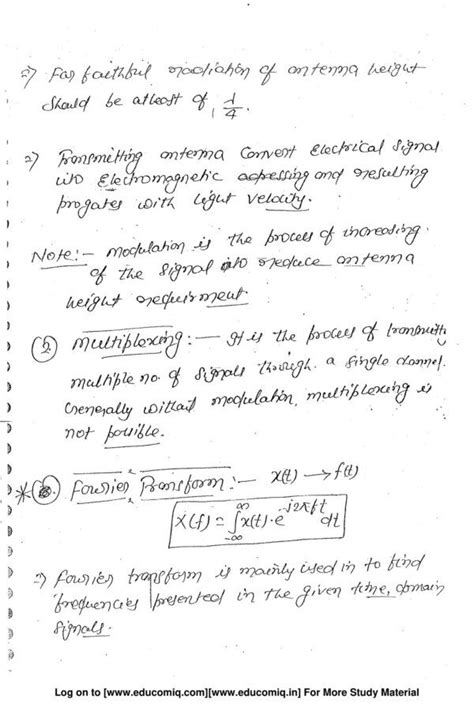 =) For faithful radiation of antenna height
should be atleast of λ/4.
=) Transmitting antenna Convert Electrical Signal
into Electromagnetic and resulting
progates with light velocity.
Note:- modulation is the process of increasing
of the signal to reduce antenna
height requirment
(2) Multiplexing:- It is the process of transmitting
multiple no. of signals through a single channel.
Generally without modulation, multiplexing is
not possible.
* Fourier Transform:- x(t) → f(t)
X(f) = ∫_{-∞}^{∞} x(t).e^{-j2πft} dt
=) Fourier transform is mainly used in to find
frequencies presented in the given time, domain
signals.
Log on to [www.educomiq.com][www.educomiq.in] For More Study Material